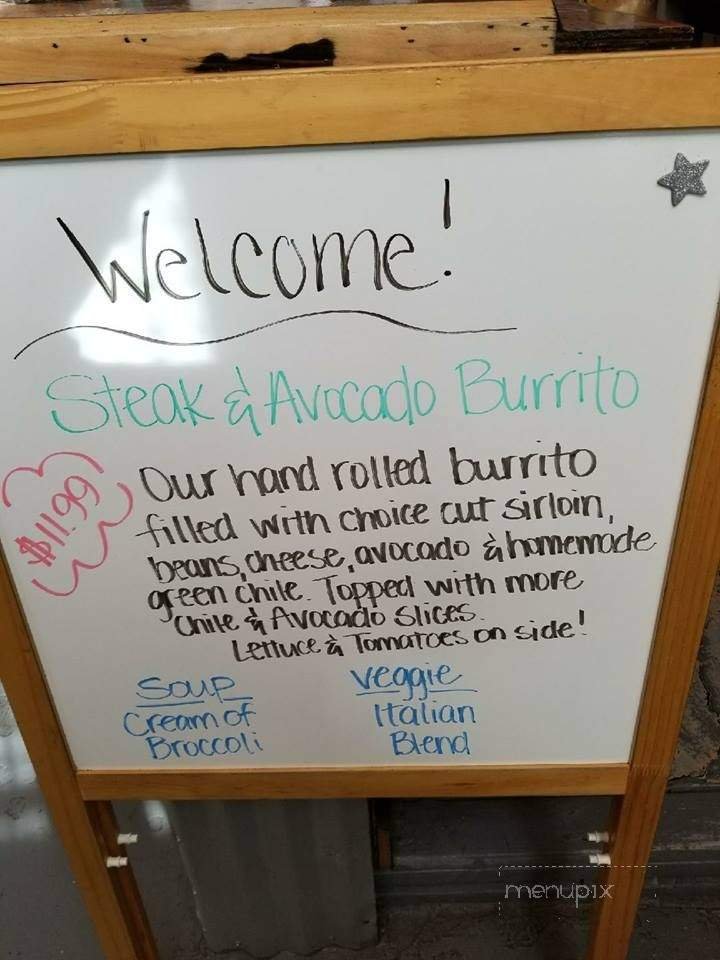 Welcome!
Steak & Avocado Burrito
$11.99
Our hand rolled burrito
filled with choice cut sirloin,
beans, cheese, avocado & homemade
green chile. Topped with more
Chile & Avocado slices.
Lettuce & Tomatoes on side!
Soup
Cream of
Broccoli
Veggie
Italian
Blend
menupix